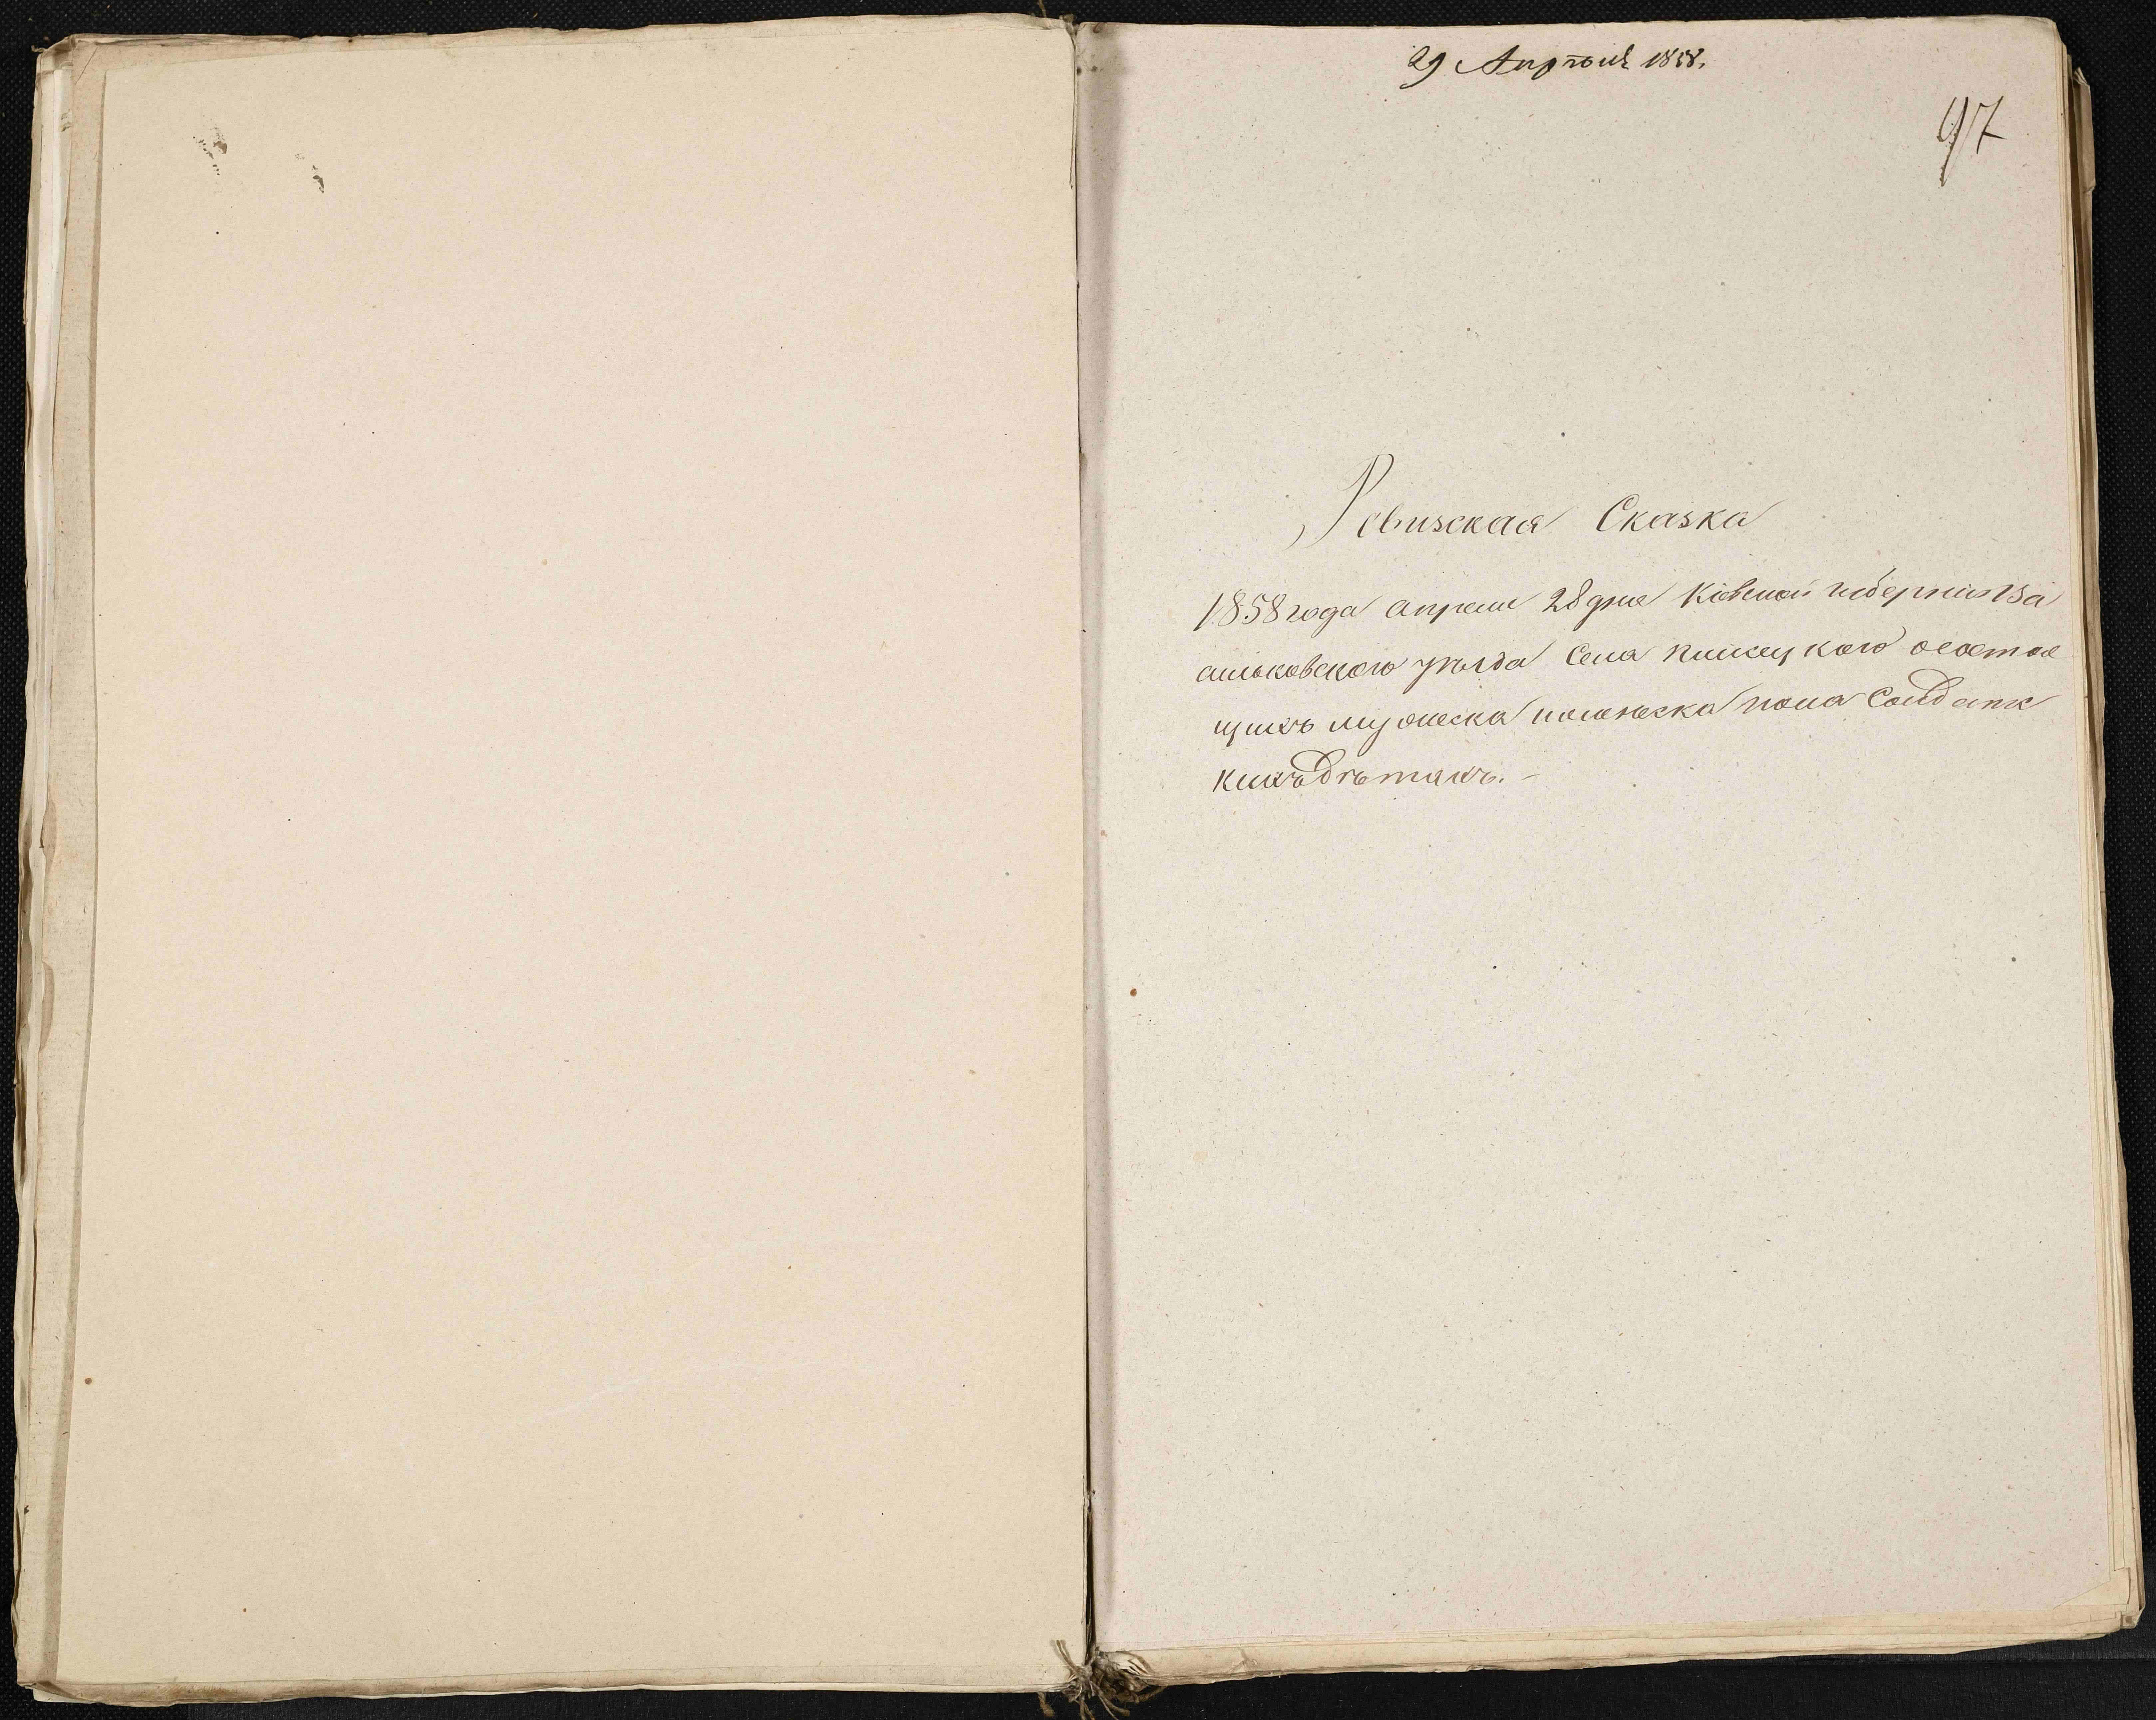 29 Апрѣля 1858.
97
Ревизская Сказка
1858 года апреля 28 дня Кіевской губерніи Ва
сильковского уѣзда Села о состоя
щихъ мужеска и женска пола Солдатс
кихъ дѣтяхъ. -